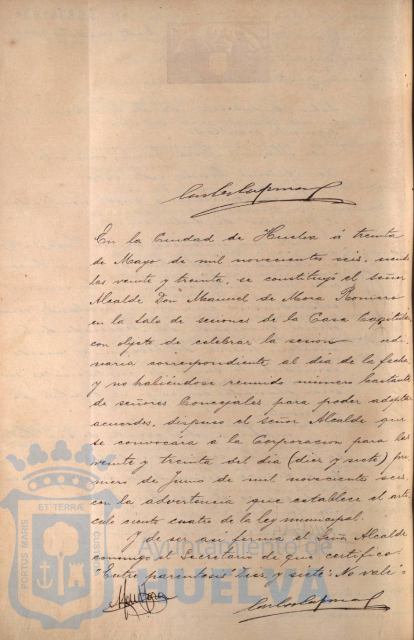 En la Ciudad de Huelva á treinta
de Mayo de mil novecientos seis, siendo
las veinte y treinta, se constituyó el señor
Alcalde Don Manuel de Mora Romero
en la Sala de sesiones de la Casa Capitular
con objeto de celebrar la sesion ordi
naria correspondiente al dia de la fecha
y no habiéndose reunido número bastante
de señores Concejales para poder adoptar
acuerdos, dispuso el señor Alcalde que
se convocára á la Corporacion para las
veinte y treinta del dia (diez y siete) pri
mero de Junio de mil novecientos seis
con la advertencia que establece el artí
culo ciento cuatro de la ley municipal.
Y de ser asi firma el Señor Alcalde
conmigo el Secretario de que certifico.
"Entre parentesis" diez y siete: No vale:
PORTUS MARIS ET TERRAE CUSTODIA
Ayuntamiento de
HUELVA